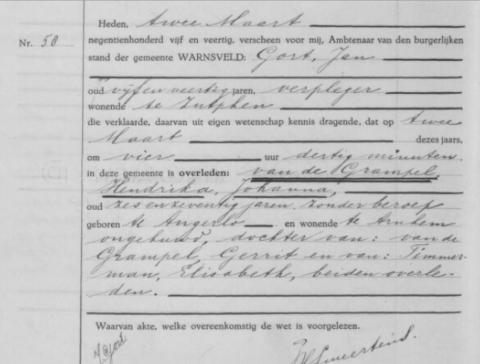 Nr. 50
Heden, twee Maart
negentienhonderd vijf en veertig, verscheen voor mij, Ambtenaar van den burgerlijken
stand der gemeente WARNSVELD: Gort, Jan
oud vijfenveertig jaren, verpleger
wonende te Zutphen
die verklaarde, daarvan uit eigen wetenschap kennis dragende, dat op twee
Maart dezes jaars,
om vier uur dertig minuten
in deze gemeente is overleden: van de Grampel
Hendrika, Johanna,
oud zesenzeventig jaren, zonder beroep
geboren te Angerlo en wonende te Arnhem
ongehuwd, dochter van: van de
Grampel, Gerrit en van: Timmer-
man, Elisabeth, beiden overle-
den.
Waarvan akte, welke overeenkomstig de wet is voorgelezen.